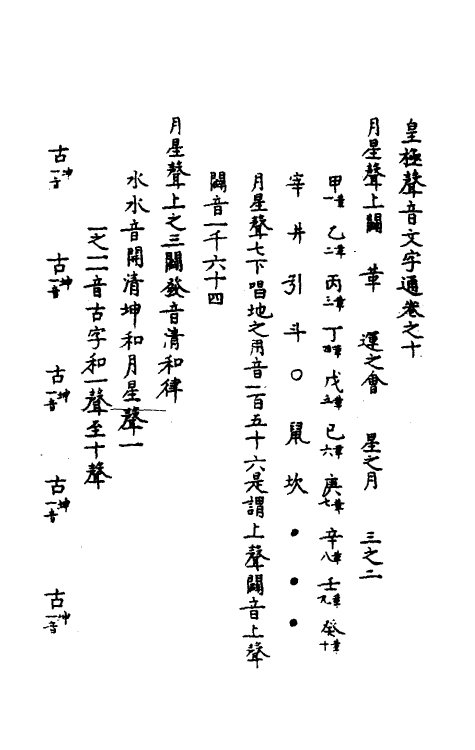 皇極聲音文字通卷之十
月星聲上闢　革　運之會　星之月　三之二
甲一革乙二革丙三革丁四革戊五革已六革庚七革辛八革壬九革癸十革
宰井引斗○鼠坎●●●
月星聲七下唱地之用音一百五十六是謂上聲闢音上聲
闢音一千六十四
月星聲上之三闢發音清和律
水水音開清坤和月星聲一
一之二音古字和一聲至十聲
古坤一音　古坤一音　古坤一音　古坤一音　古坤一音